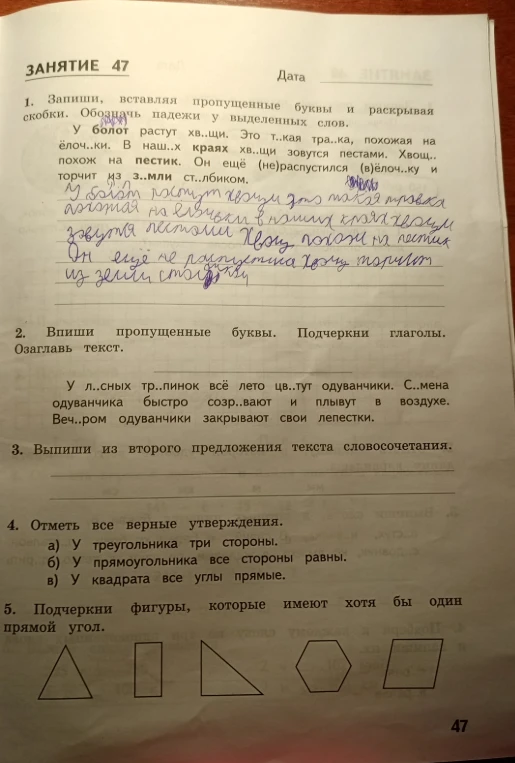 ЗАНЯТИЕ 47
Дата
1. Запиши, вставляя пропущенные буквы и раскрывая
скобки. Обозначь падежи у выделенных слов.
У болот растут хв..щи. Это т..кая тра..ка, похожая на
ёлоч..ки. В наш..х краях хв..щи зовутся пестами. Хвощ..
похож на пестик. Он ещё (не)распустился (в)ёлоч..ку и
торчит из з..мли ст..лбиком.
У болот растут хвощи это такая травка
похожая на ёлочьки в наших краях хвощи
зовутся пестами Хвощ похож на пестик
Он ещё не распустился хвощ торчит
из земли
2. Впиши пропущенные буквы. Подчеркни глаголы.
Озаглавь текст.
У л..сных тр..пинок всё лето цв..тут одуванчики. С..мена
одуванчика быстро созр..вают и плывут в воздухе.
Веч..ром одуванчики закрывают свои лепестки.
3. Выпиши из второго предложения текста словосочетания.
4. Отметь все верные утверждения.
а) У треугольника три стороны.
б) У прямоугольника все стороны равны.
в) У квадрата все углы прямые.
5. Подчеркни фигуры, которые имеют хотя бы один
прямой угол.
47